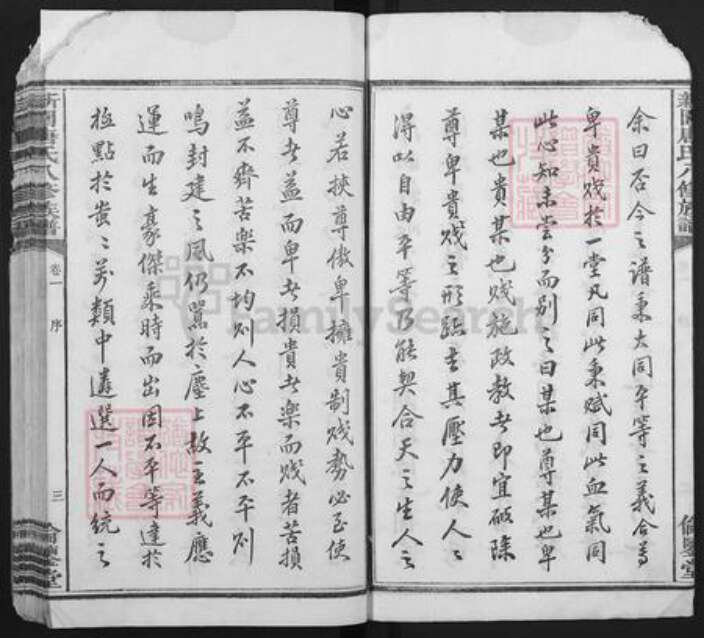 余曰否今之譜秉大同平等之義合尊
卑貴賤於一堂凡同此秉賦同此血氣同
此心知未嘗分而別之曰某也尊某也卑
某也貴某也賤施政教者即宜破除
尊卑貴賤之形跡去其壓力使人〻
得以自由平等乃能契合天之生人之
心若挾尊傲卑擁貴制賤勢必至使
尊者益而卑者損貴者樂而賤者苦損
益不齊苦樂不均則人心不平不平則
鳴封建之風仍鴛於塵上故主義應
運而生豪傑乘時而出因不平等達於
極點於蚩〻萬類中遴選一人而統之
氏八修族譜
卷一
序
三
倫鑒堂
FamilySearch